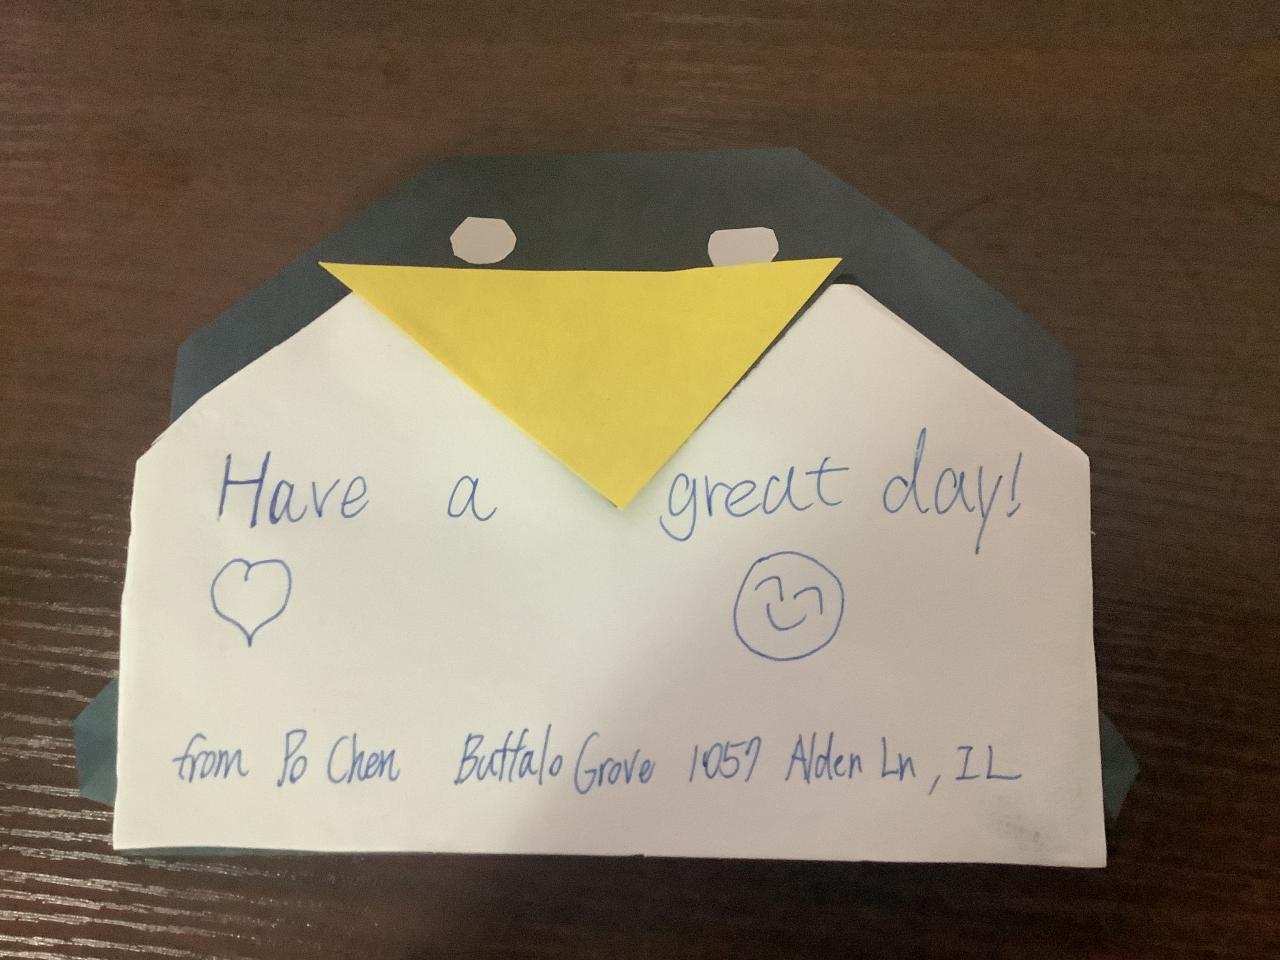 Have a great day!
from Po Chen Buffalo Grove 1057 Alden Ln, IL